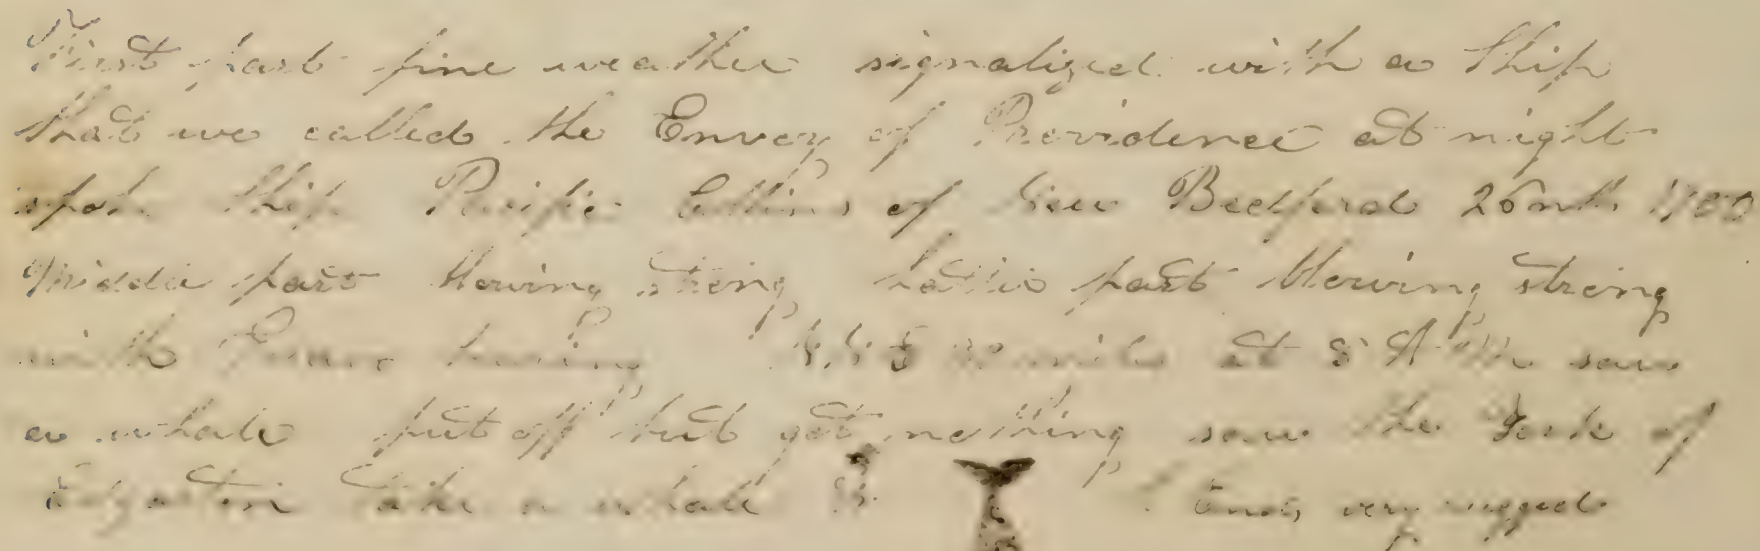 First part fine weather signalized with a Ship
that we called the Envoy of Providence at night
spok Ship Pacific of New Bedford 26 mth 1700
Middle part blowing strong Latter part blowing strong
with bearing miles at 8 A M saw
a whale put off but got nothing saw the York of
Edgarton take a whale Ends very rugged